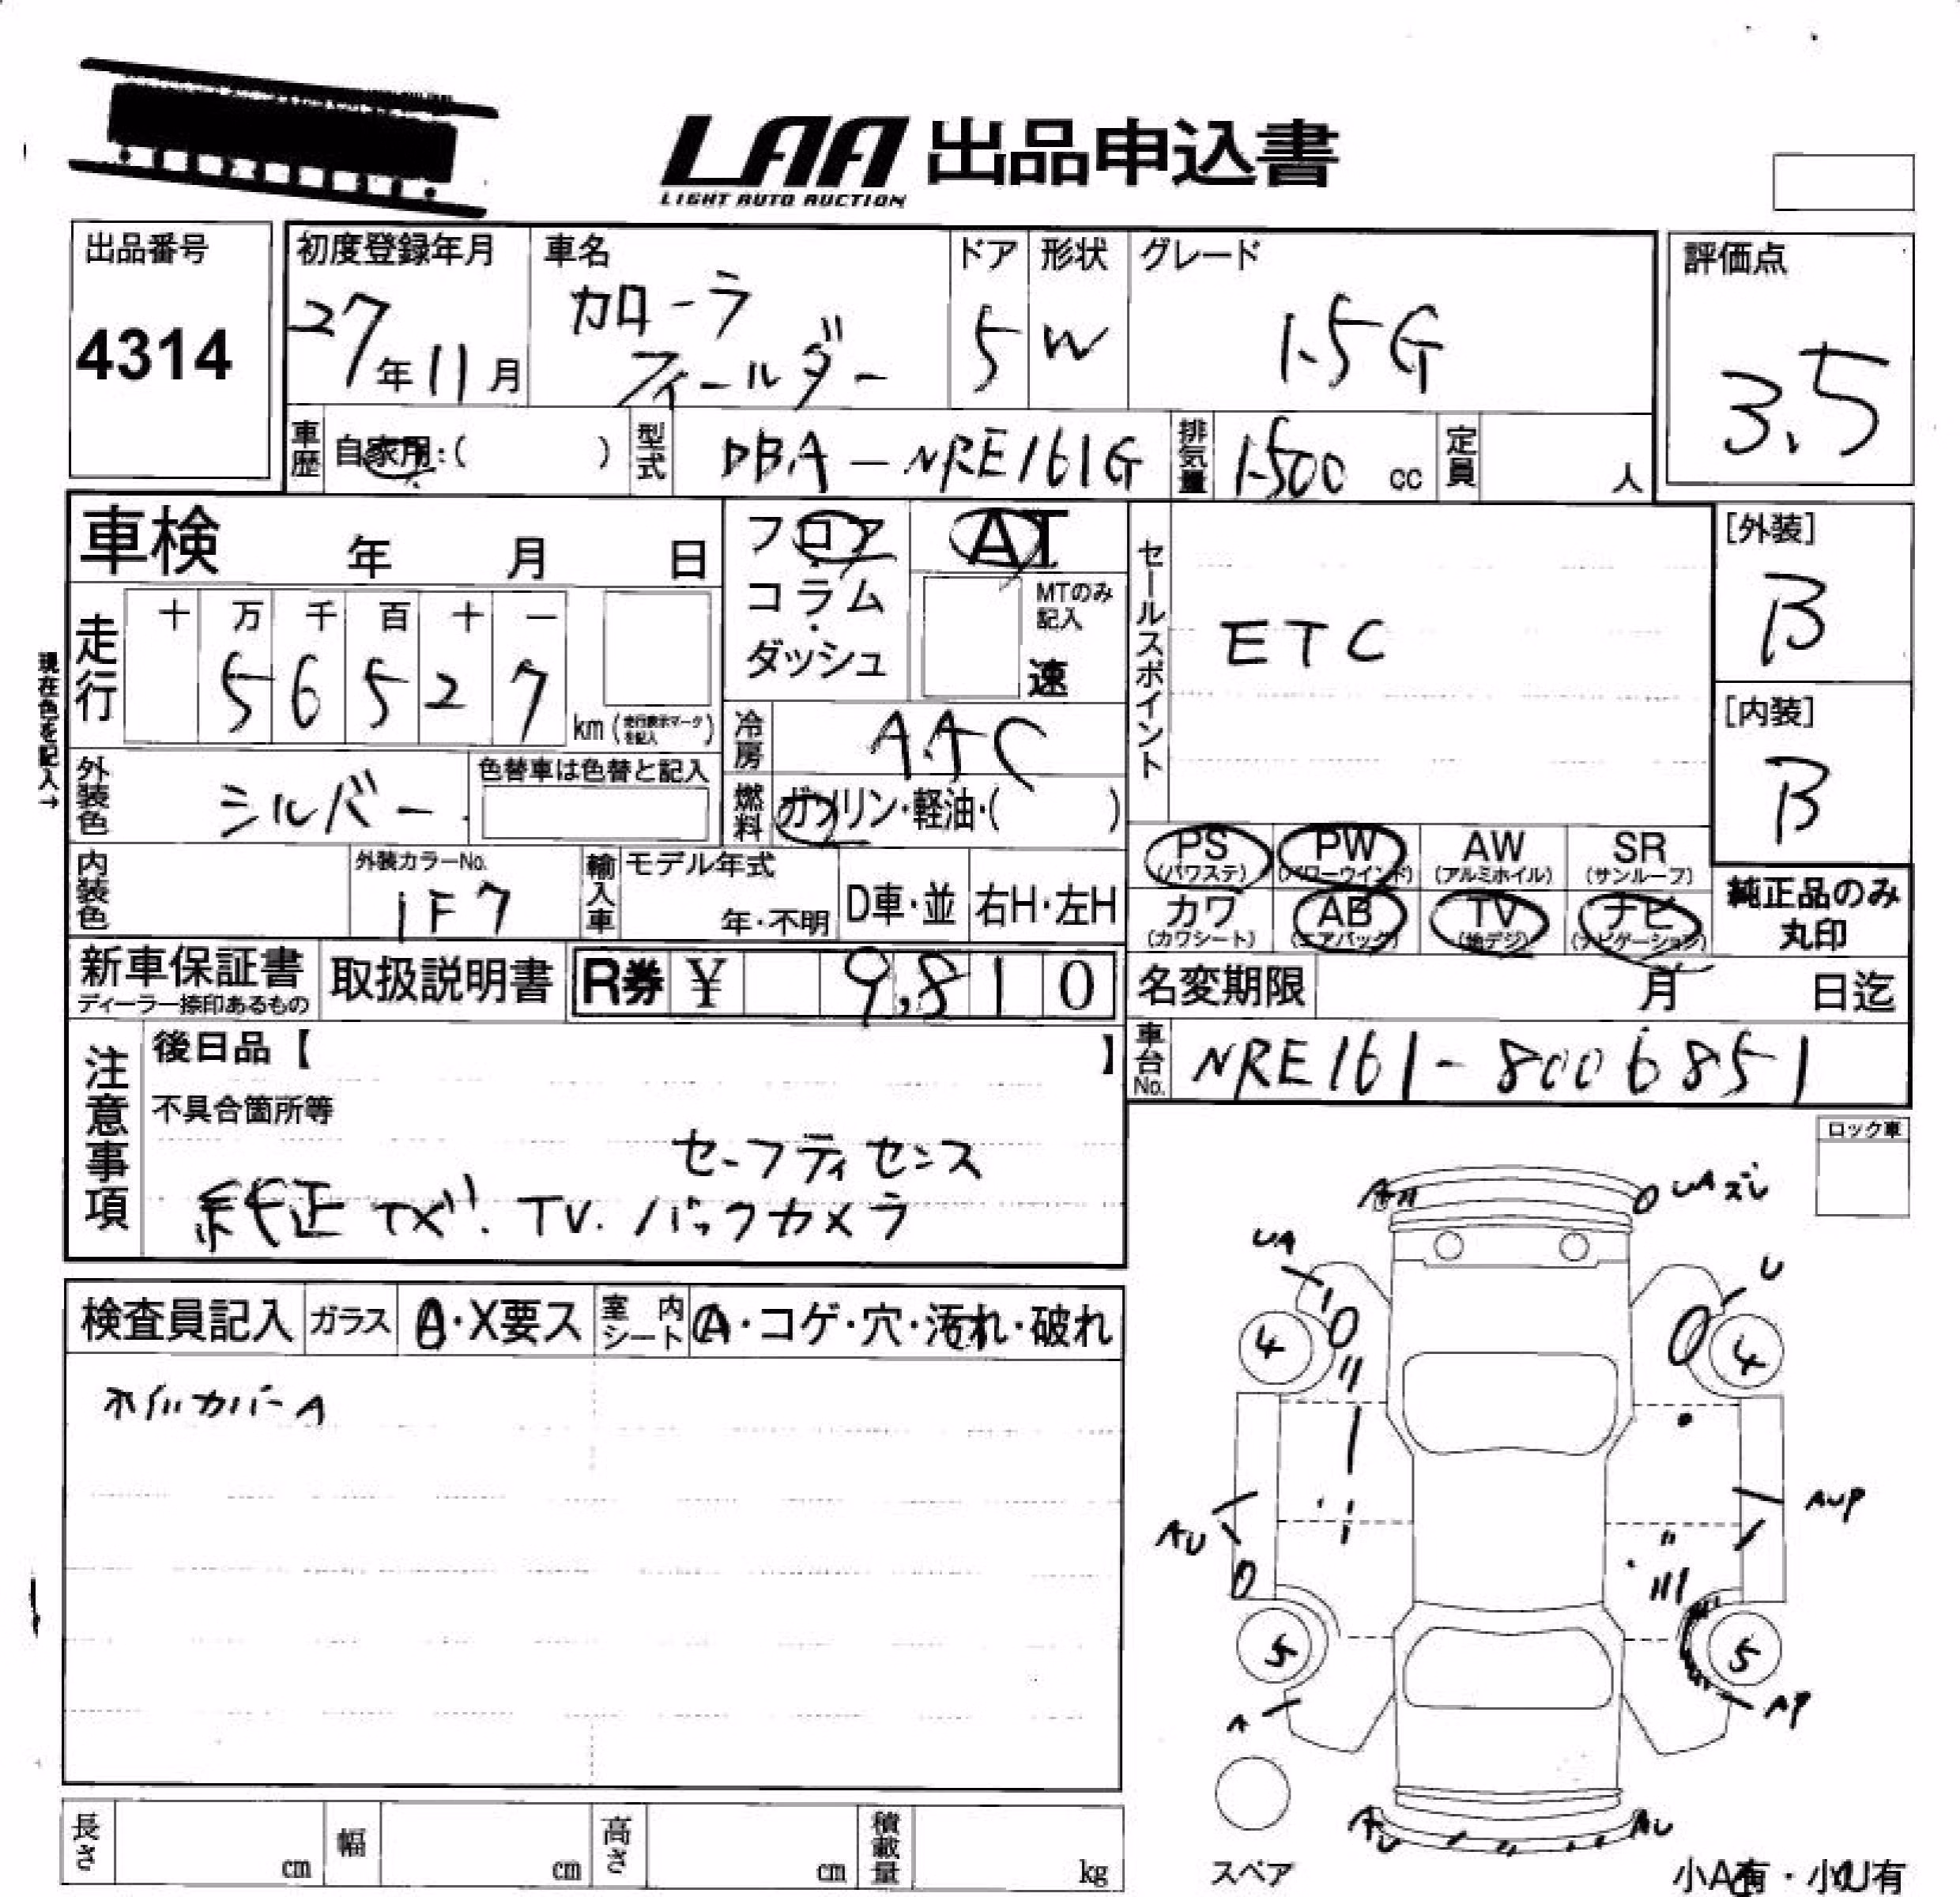 LAA 出品申込書
LIGHT AUTO AUCTION
出品番号
4314
初度登録年月
27年11月
車名
カローラ
フィールダー
ドア
5
形状
W
グレード
1.5G
評価点
3.5
車歴
自家用:( )
型式
DBA-NRE161G
排気量
1500 cc
定員
人
車検 年 月 日
フロア
コラム
ダッシュ
AT
MTのみ
記入
速
セールスポイント
ETC
[外装]
B
[内装]
B
現在色を記入→
走行
十 万 千 百 十 一
5 6 5 2 7
km (走行表示マークを記入)
冷房
AAC
外装色
シルバー
色替車は色替と記入
燃料
ガソリン・軽油・( )
PS
(パワステ)
PW
(パワーウインド)
AW
(アルミホイル)
SR
(サンルーフ)
内装色
外装カラーNo.
1F7
輸入車
モデル年式
年・不明
D車・並
右H・左H
カワ
(カワシート)
AB
(エアバッグ)
TV
(地デジ)
ナビ
(ナビゲーション)
純正品のみ
丸印
新車保証書
ディーラー捺印あるもの
取扱説明書
R券 ¥ 9,810
名変期限 月 日迄
車台No.
NRE161-8006851
注意事項
後日品【 】
不具合箇所等
セーフティセンス
純正 ナビ. TV. バックカメラ
ロック車
検査員記入
ガラス
A・X要ス
室内シート
A・コゲ・穴・汚れ・破れ
ホイルカバーA
UA ズレ
UA
U
4
4
AU
AUP
5
5
A
AP
AU
AU
スペア
小A有・小U有
長さ cm
幅 cm
高さ cm
積載量 kg